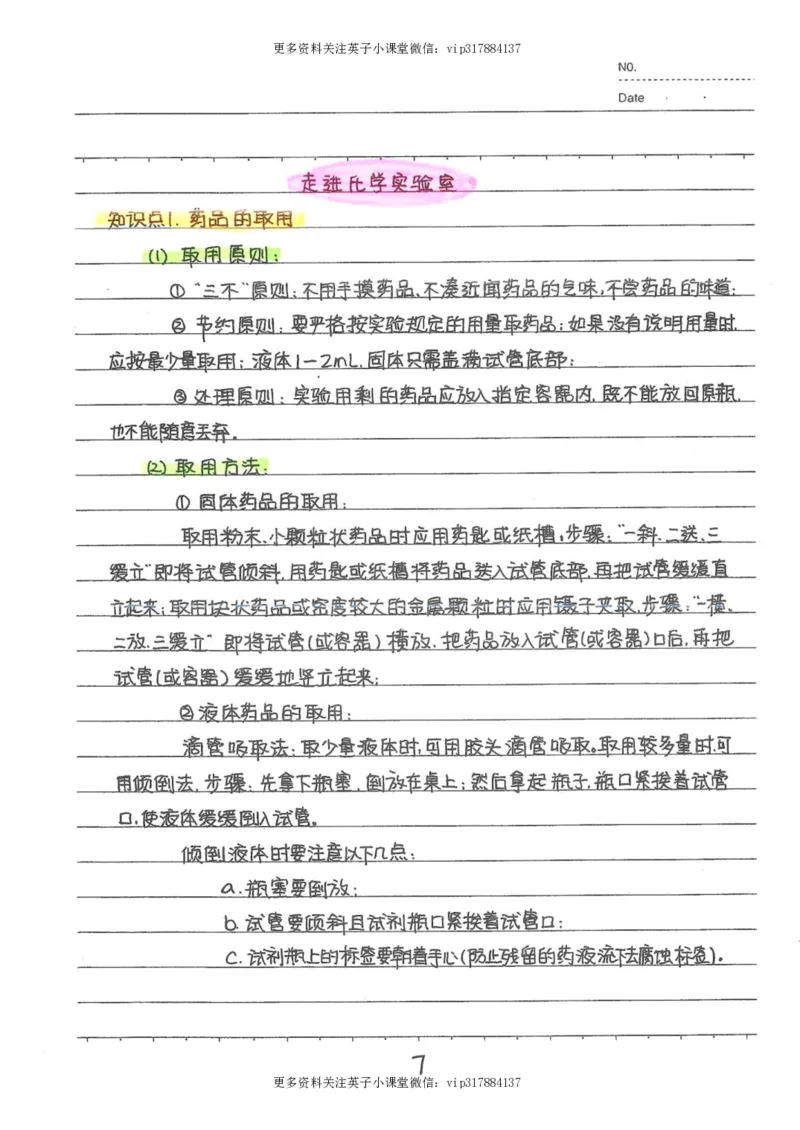 更多资料关注英子小课堂微信：vip317884137
NO.
Date
走进化学实验室
知识点1. 药品的取用
(1) 取用原则：
① "三不"原则：不用手摸药品、不凑近闻药品的气味，不尝药品的味道；
② 节约原则：要严格按实验规定的用量取药品；如果没有说明用量时，
应按最少量取用；液体1-2mL，固体只需盖满试管底部；
③ 处理原则：实验用剩的药品应放入指定容器内，既不能放回原瓶，
也不能随意丢弃。
(2) 取用方法：
① 固体药品的取用：
取用粉末、小颗粒状药品时应用药匙或纸槽，步骤："一斜、二送、三
缓立"即将试管倾斜，用药匙或纸槽将药品送入试管底部，再把试管缓缓直
立起来；取用块状药品或密度较大的金属颗粒时应用镊子夹取，步骤："一横、
二放、三缓立"即将试管(或容器)横放，把药品放入试管(或容器)口后，再把
试管(或容器)缓缓地竖立起来；
② 液体药品的取用：
滴管吸取法：取少量液体时，可用胶头滴管吸取。取用较多量时，可
用倾倒法，步骤：先拿下瓶塞，倒放在桌上；然后拿起瓶子，瓶口紧挨着试管
口，使液体缓缓倒入试管。
倾倒液体时要注意以下几点：
a. 瓶塞要倒放；
b. 试管要倾斜且试剂瓶口紧挨着试管口；
c. 试剂瓶上的标签要朝着手心(防止残留的药液流下去腐蚀标签)。
7
更多资料关注英子小课堂微信：vip317884137